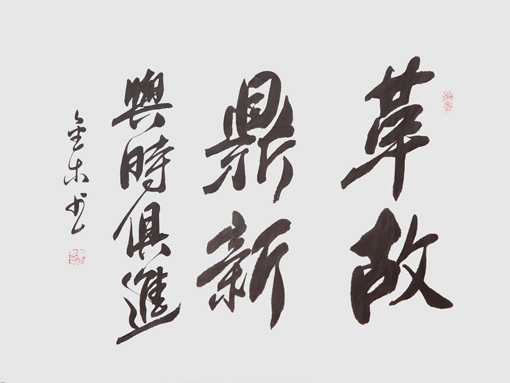 革故
鼎新
與時俱進
金木书